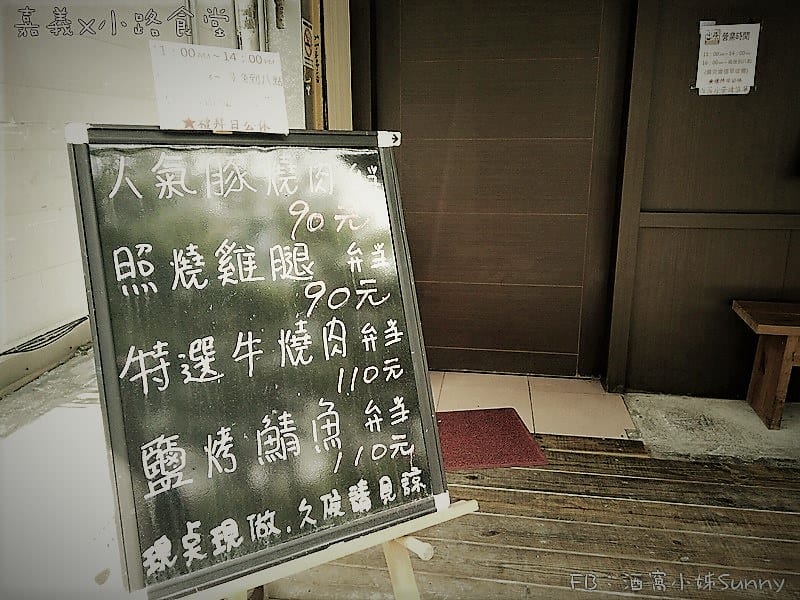 嘉義x小路食堂
11：00AM～14：00PM
★禮拜日公休
營業時間
11：00AM～14：00
人氣豚燒肉弁当
90元
照燒雞腿 弁当
90元
特選牛燒肉弁当
110元
鹽烤鯖魚弁当
110元
現桌現做．久候請見諒
FB：酒窩小姊Sunny